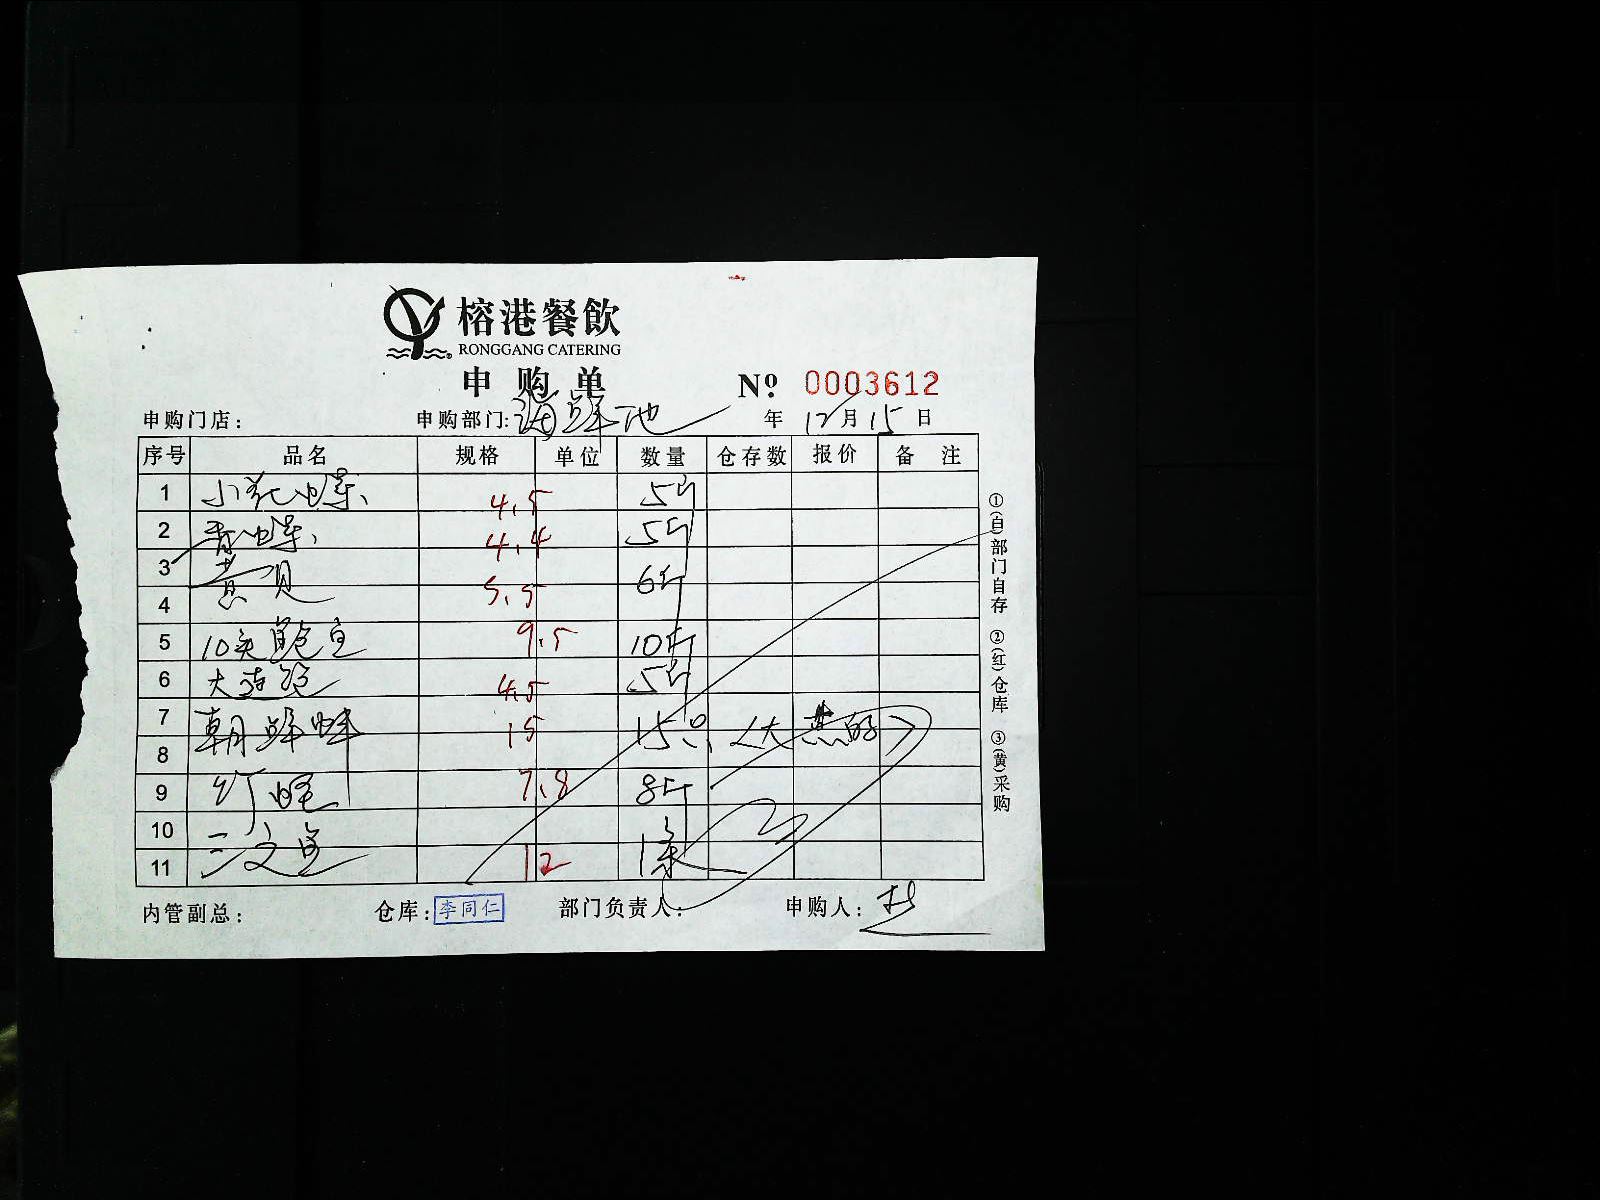 榕港餐飲
RONGGANG CATERING
申购单 Nº 0003612
申购门店: 申购部门: 海鲜池 年 12月15日
序号 品名 规格 单位 数量 仓存数 报价 备注
1 小花螺 4.5 5斤
2 香螺 4.4 5斤
3 黄贝 5.5 6斤
4
5 10头鲍鱼 9.5 10斤
6 大连鲍 4.5 5斤
7 朝鲜蚌 15 15只 (大 的)
8
9 蛏 7.8 8斤
10 三文鱼 12 1条
11
内管副总: 仓库: 李同仁 部门负责人: 申购人:
①(白)部门自存 ②(红)仓库 ③(黄)采购